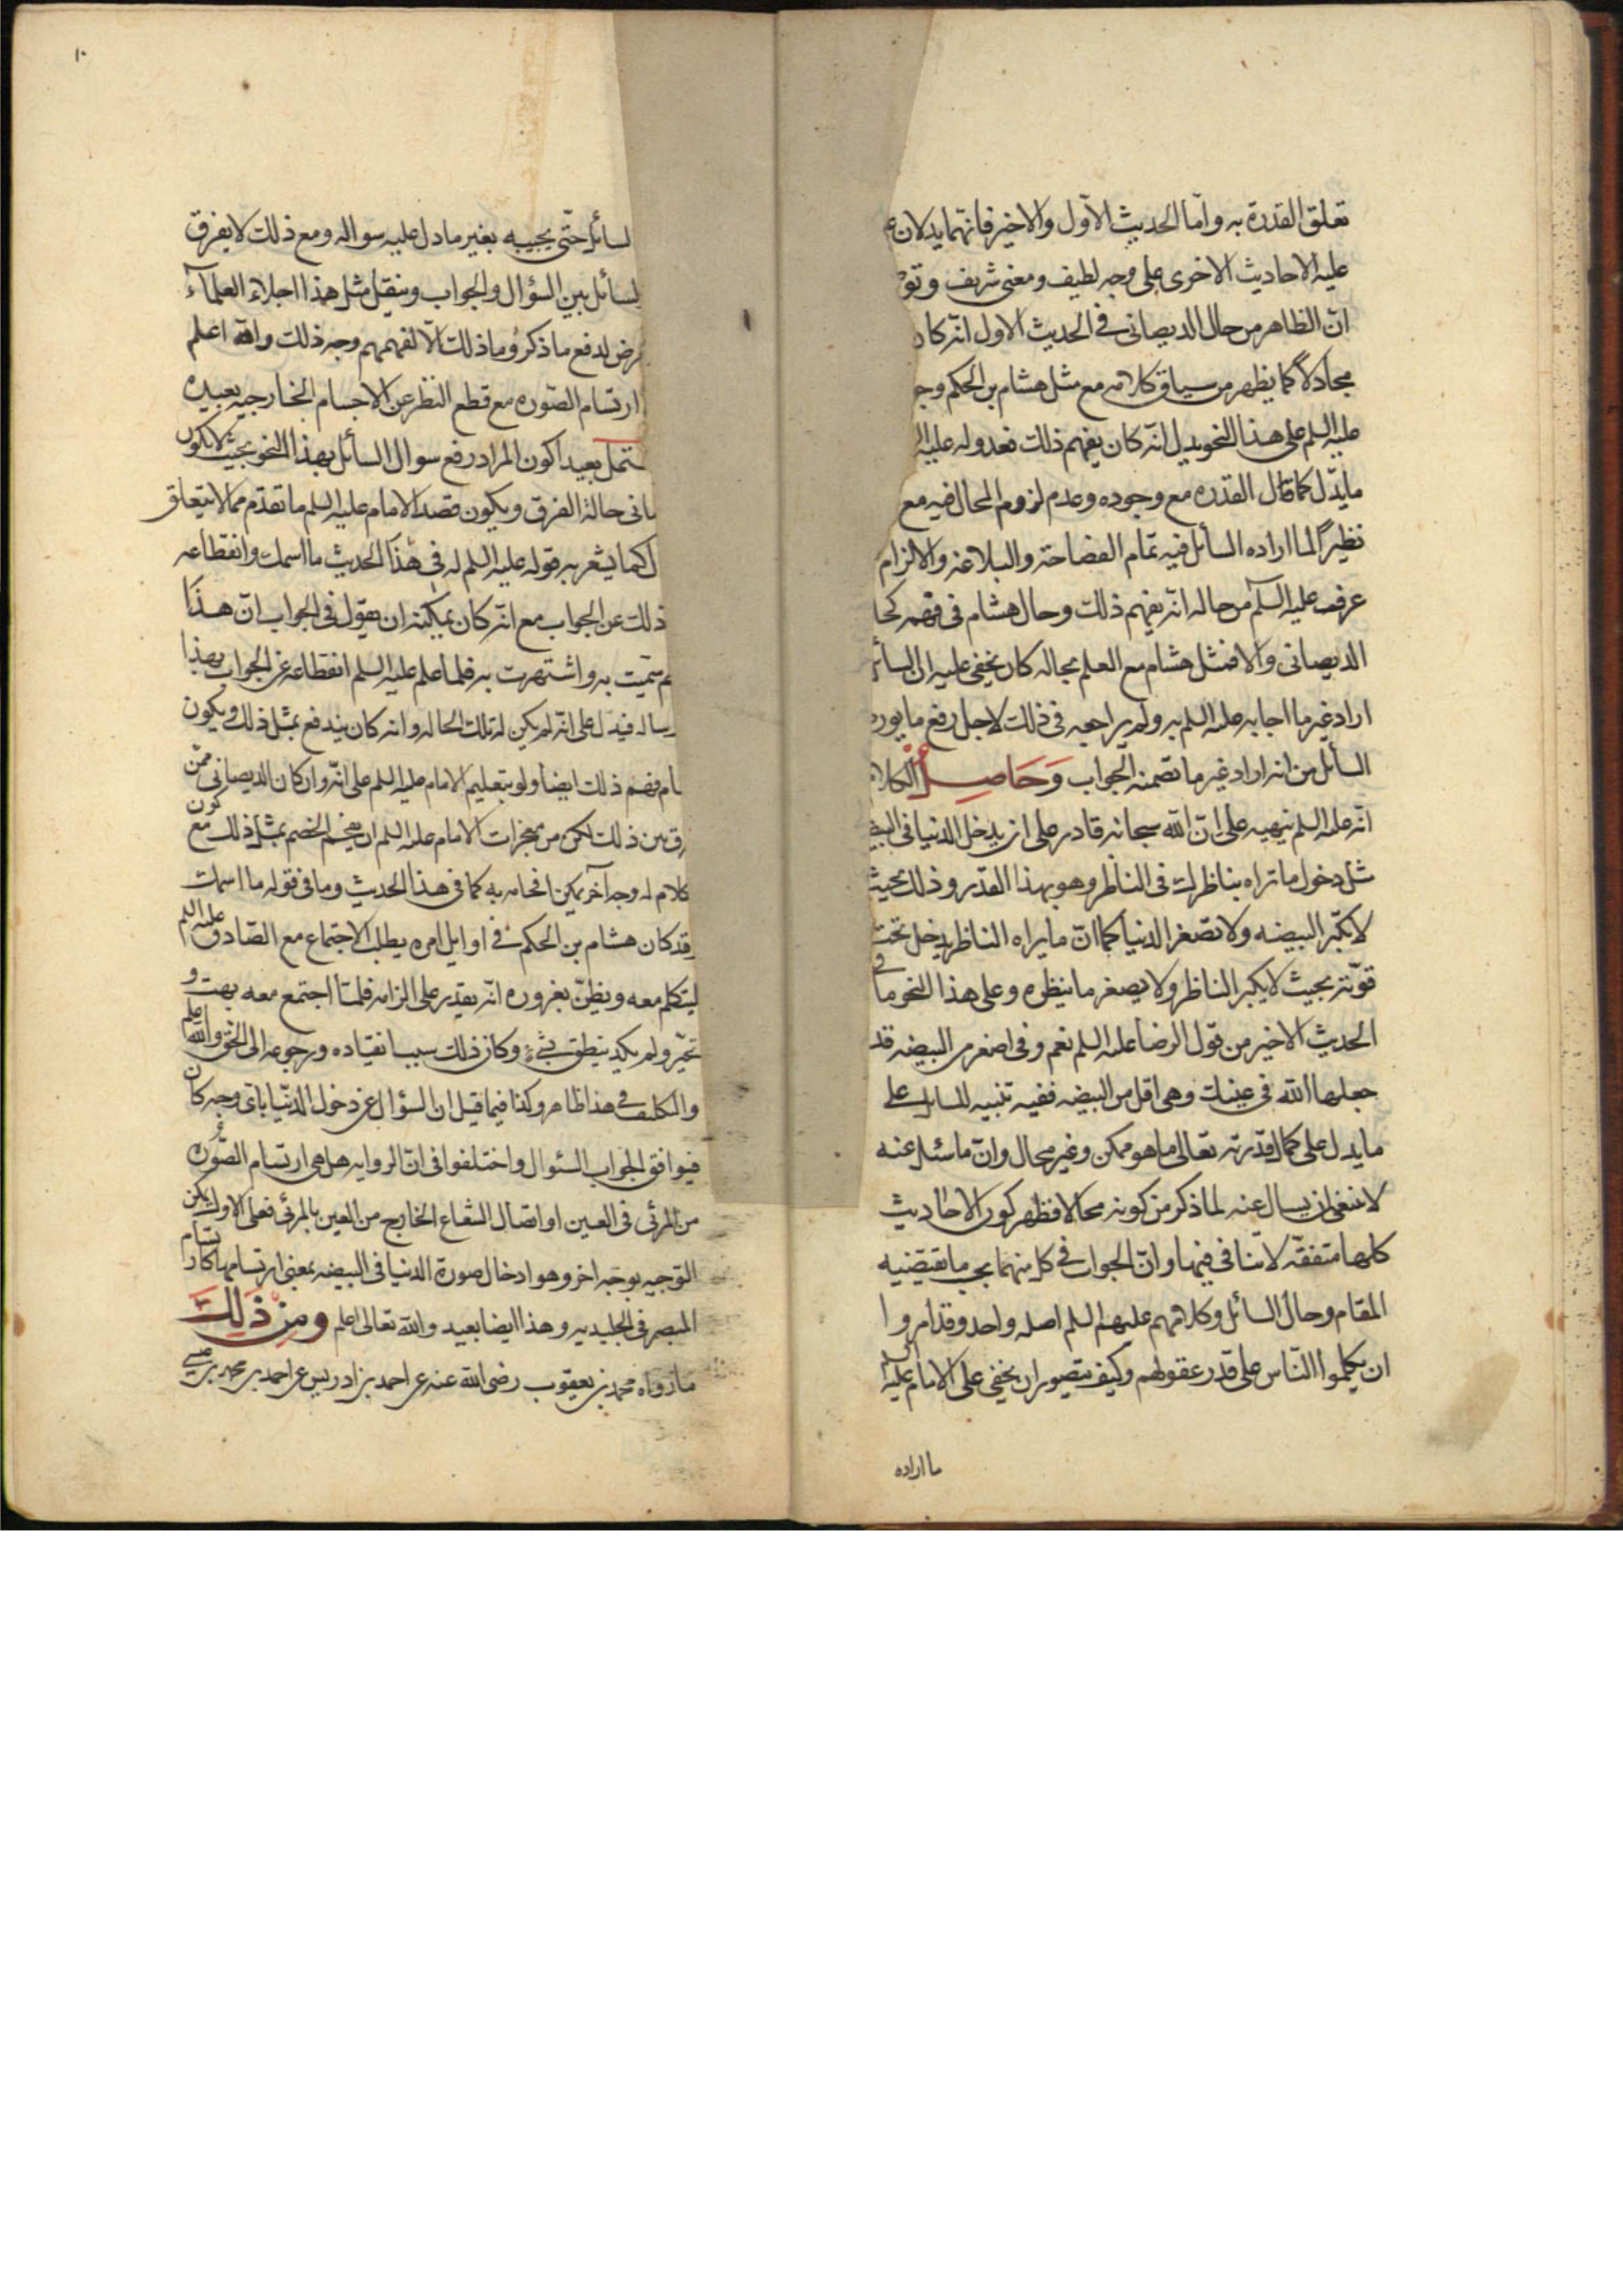 تعلق القدرة به واما الحديث الاول والاخير فانهما يدلان
عليه الاحاديث الاخرى على وجه لطيف ومعنى شريف
ان الظاهر من حال الديصانى فى الحديث الاول انه كان
مجادلا كما يظهر من سياق كلامه مع مثل هشام بن الحكم
عليه السلم على هذا النحو يدل انه كان يفهم ذلك فعدوله عليه
ما يدل كما قال القدره مع وجوده وعدم لزوم المحال فيه مع
نظيرًا لما اراده السائل فيه تمام الفصاحة والبلاغه والالزام
عرف عليه السلم من حاله انه يفهم ذلك وحال هشام فى فهمه
الديصانى والا فمثل هشام مع العلم بحاله كان يخفى عليه ان
اراد غير ما اجابه عليه السلم به ولم يراجعه فى ذلك لاجل رفع ما يورده
السائل من انه اراد غير ما تضمنه الجواب وَحَاصِل الكلام
انه عليه السلم نبهه على ان الله سبحانه قادر على ان يدخل الدنيا فى
مثل دخول ما تراه بناظرك فى الناظر وهو بهذا القدر وذلك بحيث
لا تكبر البيضه ولا تصغر الدنيا كما ان ما يراه الناظر يدخل تحت
قوته بحيث لا يكبر الناظر ولا يصغر ما ينظره وعلى هذا النحو ما فى
الحديث الاخير من قول الرضا عليه السلم نعم وفى اصغر من البيضه قد
جعلها الله فى عينك وهى اقل من البيضه ففيه تنبيه للسايل على
ما يدل على كمال قدرته تعالى ما هو ممكن وغير محال وان ما سئل عنه
لا ينبغى ان يسال عنه لما ذكر من كونه محالا فظهر كون الاحاديث
كلها متفقه لا تنافى فيها وان الجواب فى كل منهما بحسب ما يقتضيه
المقام وحال السائل وكلامهم عليهم السلم اصله واحد وقد امروا
ان يكلموا الناس على قدر عقولهم وكيف يتصور ان يخفى على الامام عليه السلم
ما اراده
١٠
لسائل حتى يجيبه بغير ما دل عليه سواله ومع ذلك لا يفرق
لسائل بين السؤال والجواب وينقل مثل هذا اجلاء العلماء
لدفع ما ذكر وما ذلك الا لفهمهم وجه ذلك والله اعلم
ارتسام الصوره مع قطع النظر عن الاجسام الخارجيه بعيده
بعيدا كون المراد رفع سوال السائل بهذا النحو بحيث لا يكون
حالة الفرق ويكون قصد الامام عليه السلم ما تقدم مما لا يتعلق
كما يشعر به قوله عليه السلم له فى هذا الحديث ما اسمك وانقطاعه
ذلك عن الجواب مع انه كان يمكنه ان يقول فى الجواب ان هذا
سميت به واشتهرت به فلما علم عليه السلم انقطاعه عن الجواب بهذا
فيدل على انه لم يكن له تلك الحاله وانه كان يندفع بمثل ذلك ويكون
فهم ذلك ايضا ولو بتعليم الامام عليه السلم على انه وان كان الديصانى ممن
بين ذلك لكن من معجزات الامام عليه السلم ان يفحم الخصم بمثل ذلك مع كون
كلام له وجه آخر يمكن افحامه به كما فى هذا الحديث وما فى قوله ما اسمك
وقد كان هشام بن الحكم فى اوايل امره يطلب الاجتماع مع الصادق عليه السلم
ليتكلم معه ويظن بغروره انه يقدر على الزامه فلما اجتمع معه بهت و
تحير ولم يكد ينطق بشئ وكان ذلك سبب انقياده ورجوعه الى الحق والله اعلم
والتكلف فى هذا ظاهر وكذا فيما قيل ان السؤال عن دخول الدنيا باى وجه كان
فيوافق الجواب السئوال واختلفوا فى ان الروايه هل هى ارتسام الصوره
من المرئى فى العين او اتصال الشعاع الخارج من العين بالمرئى فعلى الاول يمكن
التوجيه بوجه اخر وهو ادخال صورة الدنيا فى البيضه بمعنى ارتسامها كارتسام
المبصر فى الجليديه وهذا ايضا بعيد والله تعالى اعلم وَمِنْ ذَلِكَ
ما رواه محمد بن يعقوب رضى الله عنه عن احمد بن ادريس عن احمد بن محمد بن عيسى